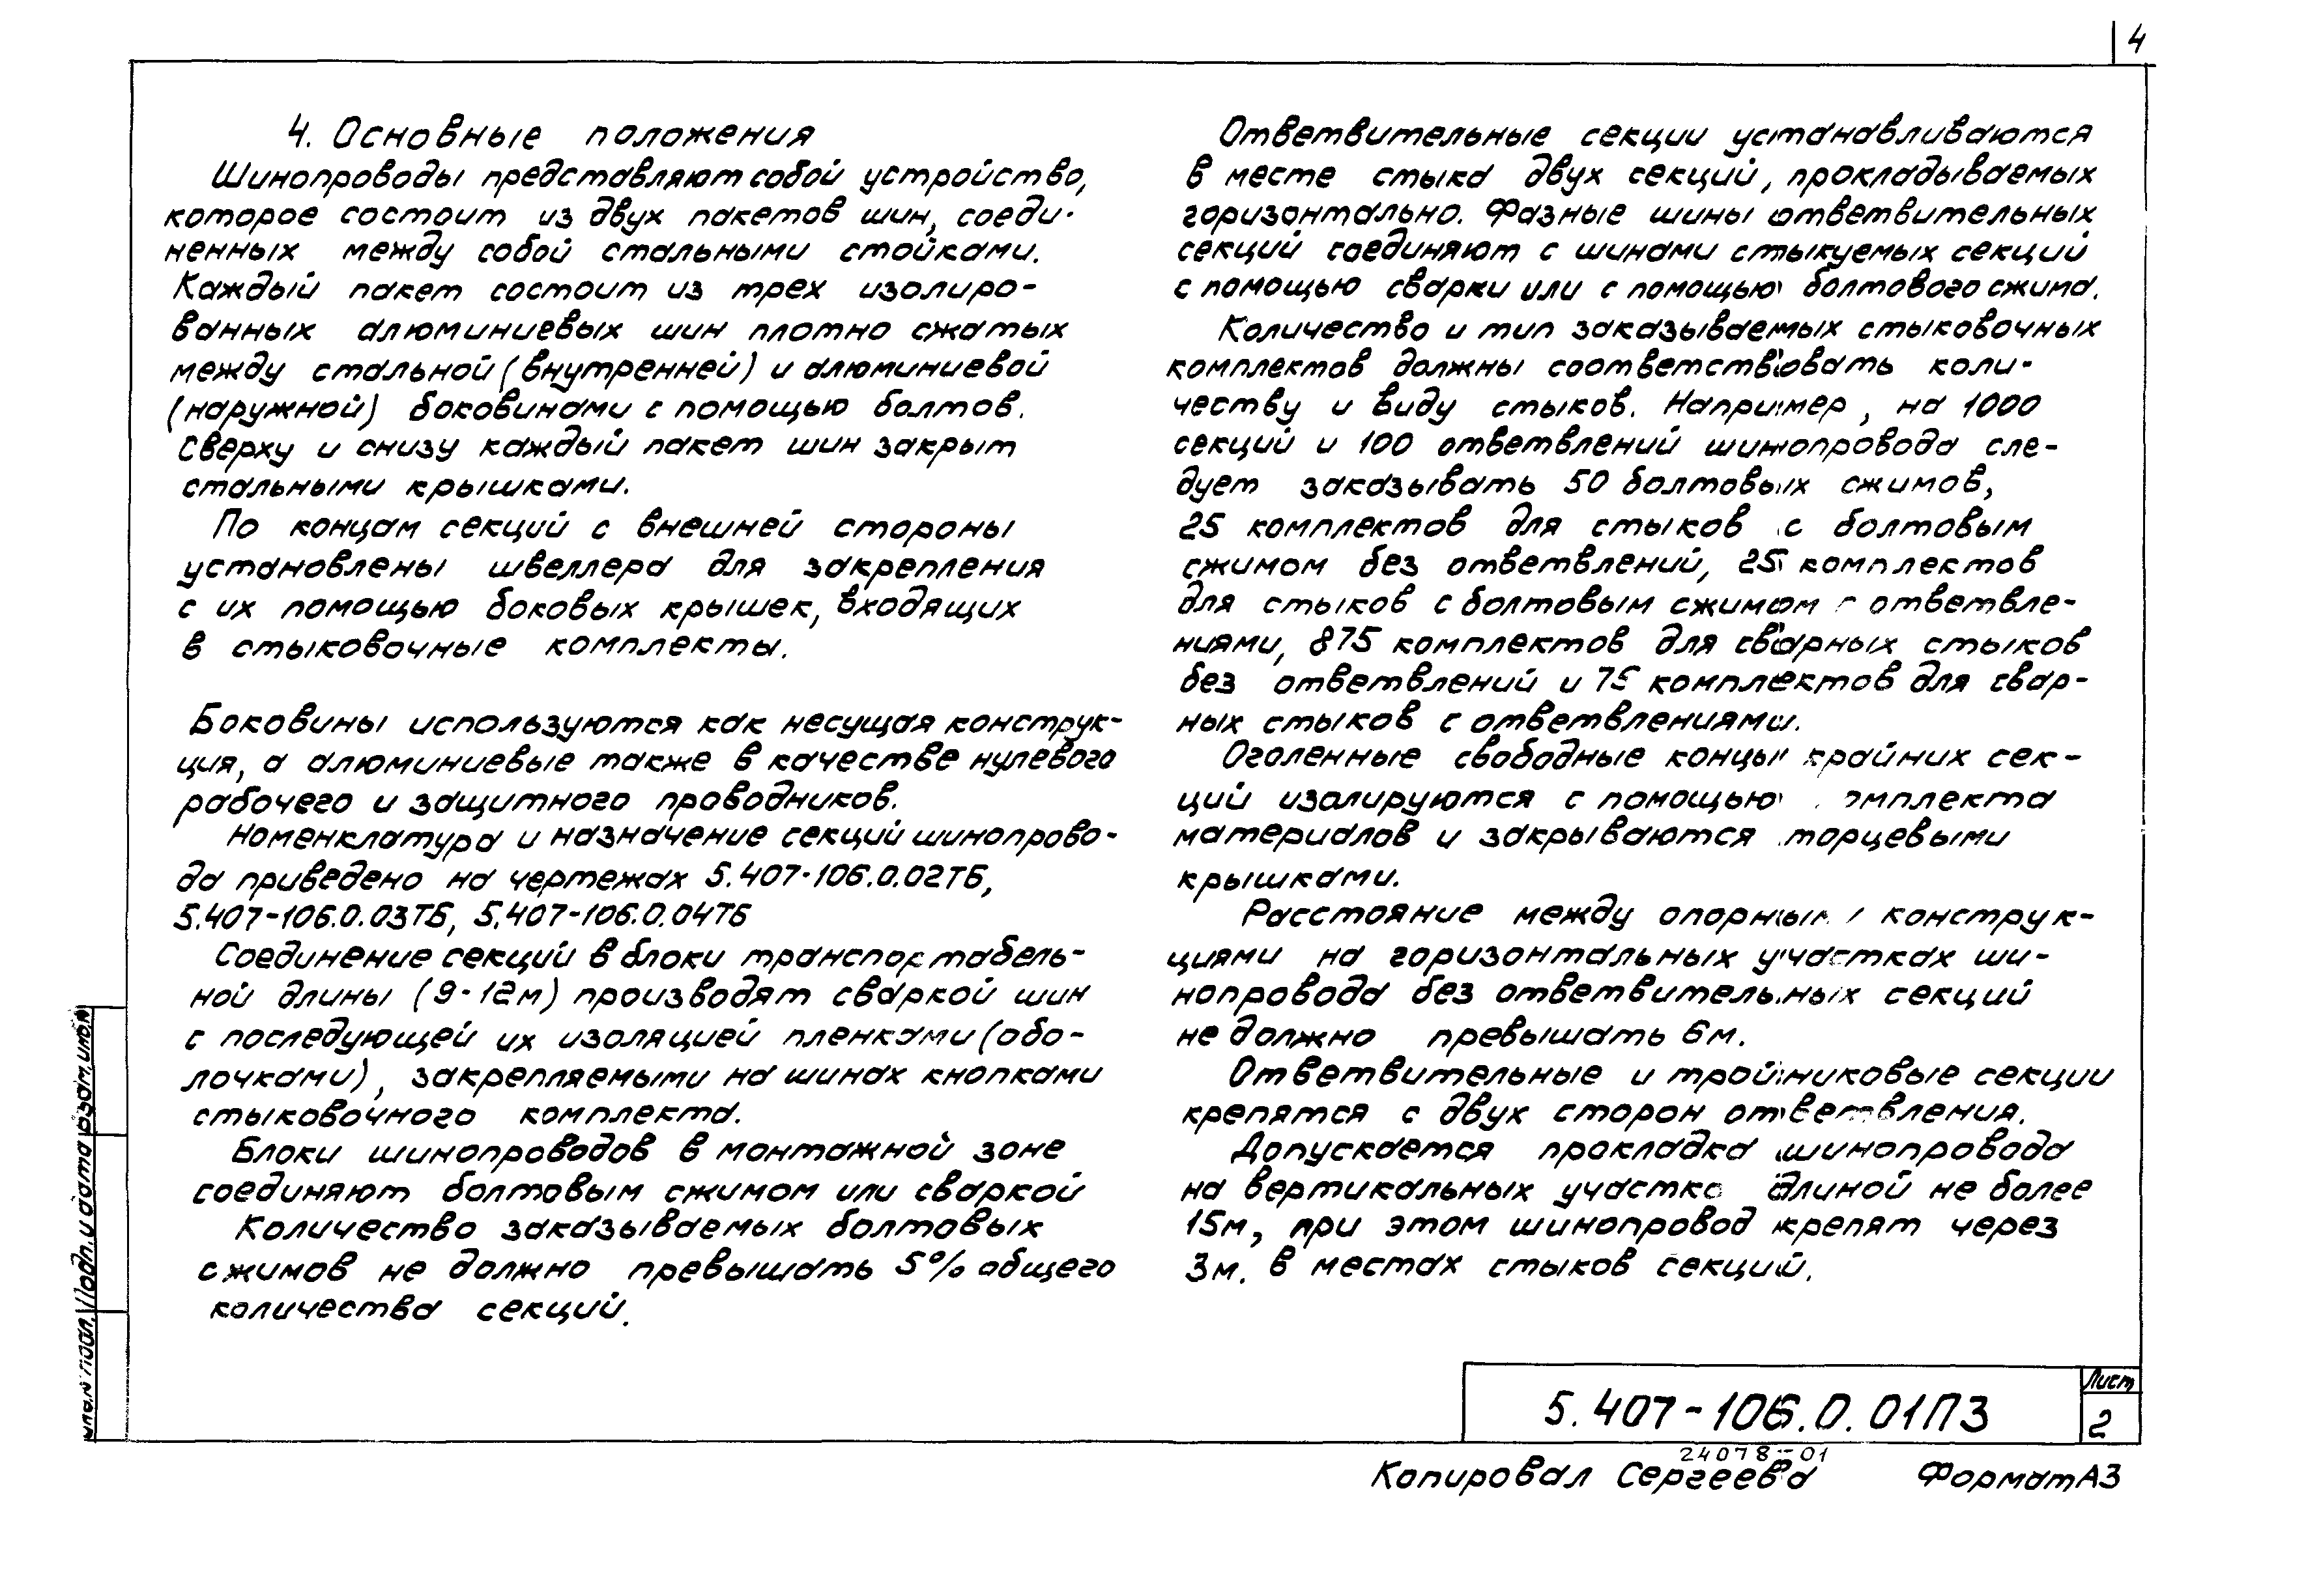 4
4. Основные положения
Шинопроводы представляют собой устройство,
которое состоит из двух пакетов шин, соеди-
ненных между собой стальными стойками.
Каждый пакет состоит из трех изолиро-
ванных алюминиевых шин плотно сжатых
между стальной (внутренней) и алюминиевой
(наружной) боковинами с помощью болтов.
Сверху и снизу каждый пакет шин закрыт
стальными крышками.
По концам секций с внешней стороны
установлены швеллера для закрепления
с их помощью боковых крышек, входящих
в стыковочные комплекты.
Боковины используются как несущая конструк-
ция, а алюминиевые также в качестве нулевого
рабочего и защитного проводников.
Номенклатура и назначение секций шинопрово-
да приведено на чертежах 5.407-106.0.02ТБ,
5.407-106.0.03ТБ, 5.407-106.0.04ТБ
Соединение секций в блоки транспортабель-
ной длины (9-12м) производят сваркой шин
с последующей их изоляцией пленками (обо-
лочками), закрепляемыми на шинах кнопками
стыковочного комплекта.
Блоки шинопроводов в монтажной зоне
соединяют болтовым сжимом или сваркой
Количество заказываемых болтовых
сжимов не должно превышать 5% общего
количества секций.
Ответвительные секции устанавливаются
в месте стыка двух секций, прокладываемых
горизонтально. Фазные шины ответвительных
секций соединяют с шинами стыкуемых секций
с помощью сварки или с помощью болтового сжима.
Количество и тип заказываемых стыковочных
комплектов должны соответствовать коли-
честву и виду стыков. Например, на 1000
секций и 100 ответвлений шинопровода сле-
дует заказывать 50 болтовых сжимов,
25 комплектов для стыков с болтовым
сжимом без ответвлений, 25 комплектов
для стыков с болтовым сжимом с ответвле-
ниями, 875 комплектов для сварных стыков
без ответвлений и 75 комплектов для свар-
ных стыков с ответвлениями.
Оголенные свободные концы крайних сек-
ций изолируются с помощью комплекта
материалов и закрываются торцевыми
крышками.
Расстояние между опорными конструк-
циями на горизонтальных участках ши-
нопровода без ответвительных секций
не должно превышать 6м.
Ответвительные и тройниковые секции
крепятся с двух сторон ответвления.
Допускается прокладка шинопровода
на вертикальных участках длиной не более
15м, при этом шинопровод крепят через
3м. в местах стыков секций.
Инв.№ подл. Подп. и дата Взам. инв.№
5.407-106.0.01ПЗ
Лист
2
24078-01
Копировал Сергеева Формат А3